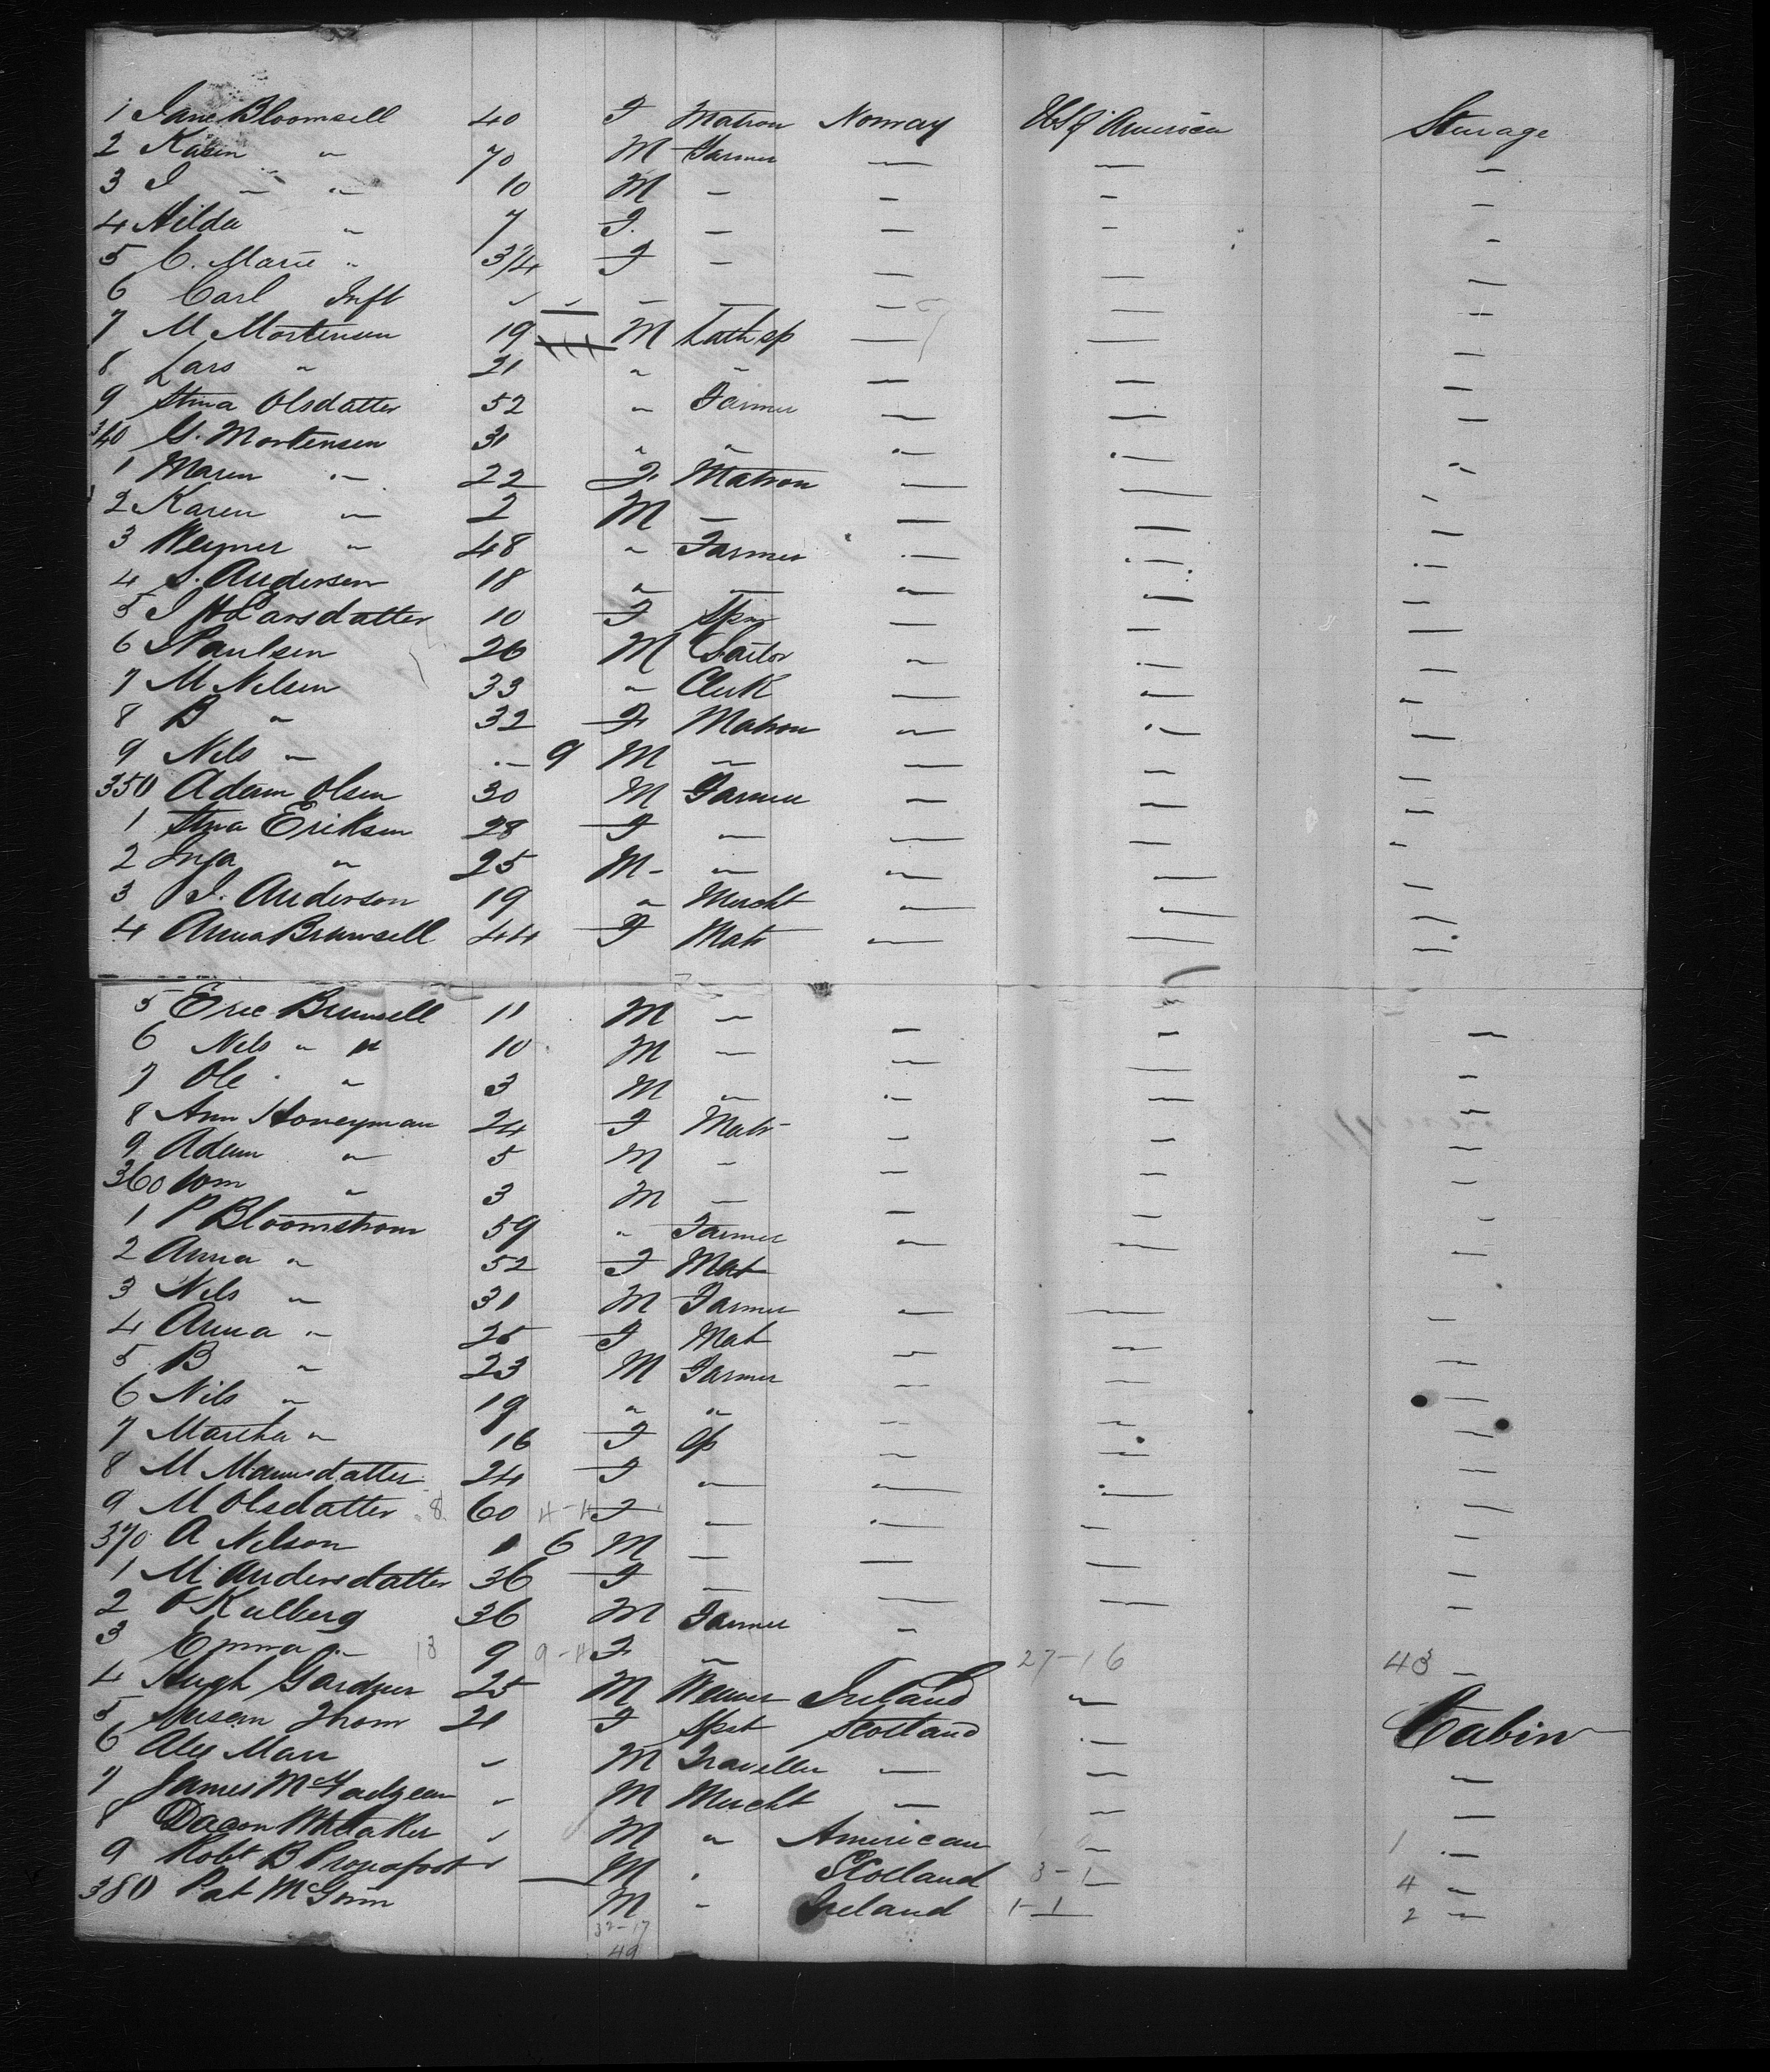 1 Jane Bloomsell 40 F Matron Norway U S of America Steerage
2 Karen " 70 M Farmer — — —
3 I — " 10 M — — — —
4 Hilda " 7 F. — — — —
5 C. Marie " 3/4 F — — — —
6 Carl Inft " " — — — — —
7 M Mortensen 19 M — — —
8 Lars " 21 " " — — —
9 Stina Olsdatter 52 " Farmer — — —
340 G. Mortensen 31 " " — — —
1 Maren " 22 F. Matron — — —
2 Karen " 2 M — — — —
3 Wegner " 48 " Farmer — — —
4 S. Andersen 18 " — — — —
5 I H Larsdatter 10 F Spin — — —
6 Paulsen 26 M Sailor — — —
7 M Nelsen 33 " Clerk — — —
8 B " 32 F Matron — — —
9 Nils " — 9 M — — — —
350 Adam Olsen 30 M Farmer — — —
1 Stina Eriksen 28 F — — — —
2 Inga " 25 M - " — — —
3 I. Anderson 19 " Mercht — — —
4 Anna Brunsell 44 F Matr — — —
5 Eric Brunsell 11 M — — — —
6 Nels " " 10 M — — — —
7 Ole " 3 M — — — —
8 Ann Honeyman 24 F Matr — — —
9 Adam " 5 M — — — —
360 Wm " 3 M — — — —
1 P Bloomstrom 59 " Farmer — — —
2 Anna " 52 F Mat
3 Nels " 31 M Farmer — — —
4 Anna " 25 F Mat — — —
5 B " 23 M Farmer — — —
6 Nils " 19 " " — — —
7 Martha " 16 F Sp — — —
8 M Mannsdatter 24 F — — — —
9 M Olsdatter 8 60 4-4 F — — — —
370 A Nelson 6 M — — — —
1 M Andersdatter 36 F — — — —
2 O Kulberg 36 M Farmer — — —
3 Emma " 13 9 9-4 F — 27-16 43 —
4 Hugh Gardner 25 M Weaver Ireland —
5 Susan Thom 21 F Spst Scotland — Cabin
6 Alex Marr " M Traveller — — —
7 James " M Mercht — — —
8 Whitaker " M " American — 1 —
9 Robt B " M " Scotland 3-1 4 —
380 Pat M M " Ireland 1-1 2 —
32-17
49